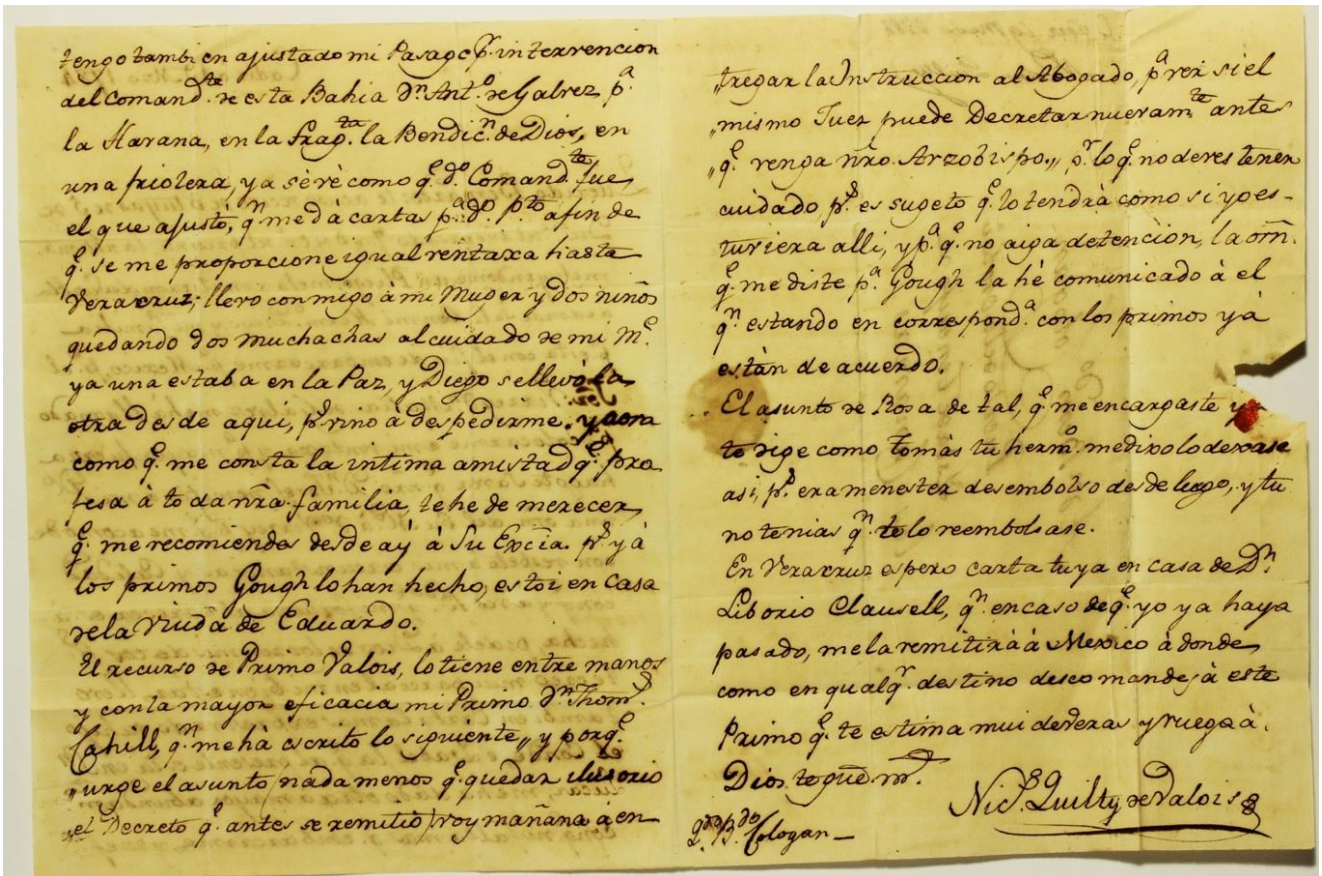 tengo tambien ajustado mi Pasage pr. intervencion
del Comandte. de esta Bahia Dn. Anto. de Galvez pa.
la Havana, en la Fragta. la Bendicn. de Dios, en
una friolera, ya se vé como qe. do. Comandte. fue
el que ajustò, qn. me dà cartas pa. do. Pto. afin de
qe. se me proporcione igual ventaxa hasta
Veracruz; llevo conmigo à mi Muger y dos niños
quedando dos muchachas al cuidado de mi Me.
ya una estaba en la Paz, y Diego se llevó la
otra desde aqui, ps. vino à despedirme. y aora
como qe. me consta la intima amistad qe. pro
fesa à toda nr̃a. familia, te he de merecer
qe. me recomiendes desde aý à Su Exc̃ia. ps. yà
los primos Gough lo han hecho, estoi en casa
de la Viuda de Eduardo.
El recurso de Primo Valois, lo tiene entre manos
y con la mayor eficacia mi Primo Dn. Thoms.
Cahill, qn. me hà escrito lo siguiente „ y porqe.
„ urge el asunto (nada menos qe. quedar ilusorio
„ el Decreto qe. antes se remitió) voy mañana à en-
„ tregar la Instruccion al Abogado, pa. ver si el
„ mismo Juez puede Decretar nuevamte. ante
„ qe. venga nr̃o. Arzobispo„ pr. lo qe. no deves tener
cuidado ps. es sugeto qe. lo tendrà como si yo es-
tuviera alli, y pa. qe. no aiga detenciòn, la orn̄.
qe. me diste pa. Gough la hé comunicado à el
qn. estando en correspondª. con los primos yà
estàn de acuerdo.
El asunto de Rosa de tal, qe. me encargaste ya
te dige como tomàs tu hermo. me dixo lo dexase
asi, ps. era menester desembolso desde luego, y tu
no tenias qn. te lo reembolsase.
En Veracruz espero carta tuya en casa de Dn.
Liborio Clausell, qn. en caso de qe. yo ya haya
pasado, me la remitirá à Mexico à donde
como en qualqr. destino deseo mandes à este
Primo qe. te estima mui deveras y ruega à
Dios te gue̅. ms.
Nics. Quilty de Valois
Bdo. Cologan